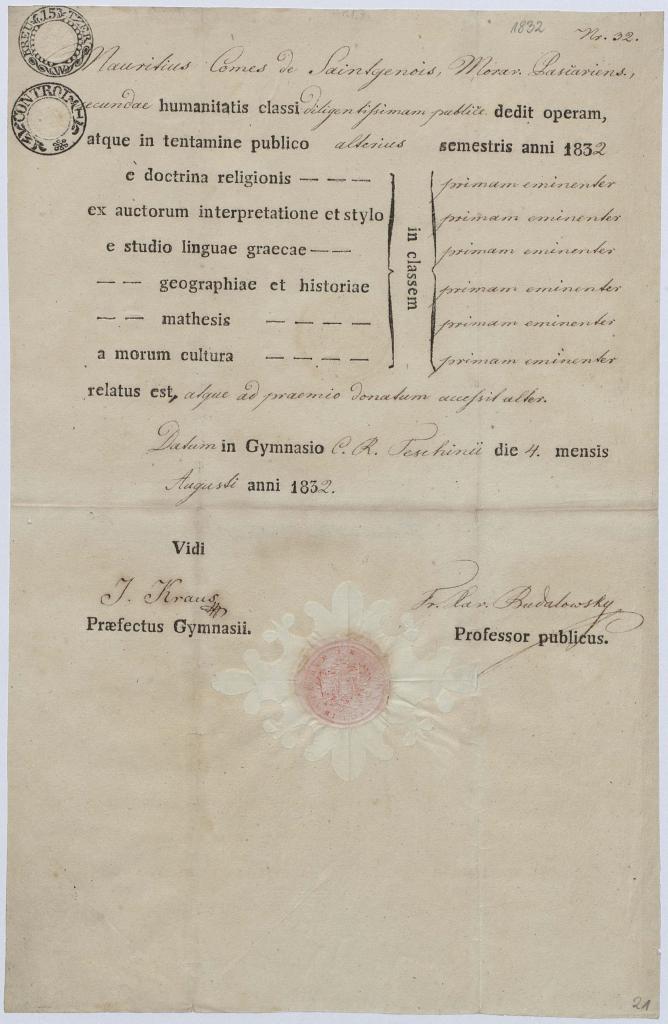 1832 Nr. 32.
Mauritius Comes de Saintgenois, Morav. Pascariens.,
secundae humanitatis classi diligentissimam publice dedit operam,
CONTROL
atque in tentamine publico alterius semestris anni 1832
e doctrina religionis — — — primam eminenter
ex auctorum interpretatione et stylo primam eminenter
e studio linguae graecae — — primam eminenter
in classem
— — geographiae et historiae primam eminenter
— — mathesis — — — — primam eminenter
a morum cultura — — — — primam eminenter
relatus est, atque ad praemio donatum accessit alter.
Datum in Gymnasio C. R. Teschinii die 4. mensis
Augusti anni 1832.
Vidi
J. Kraus Fr. Xav. Budalowsky
Præfectus Gymnasii. Professor publicus.
21